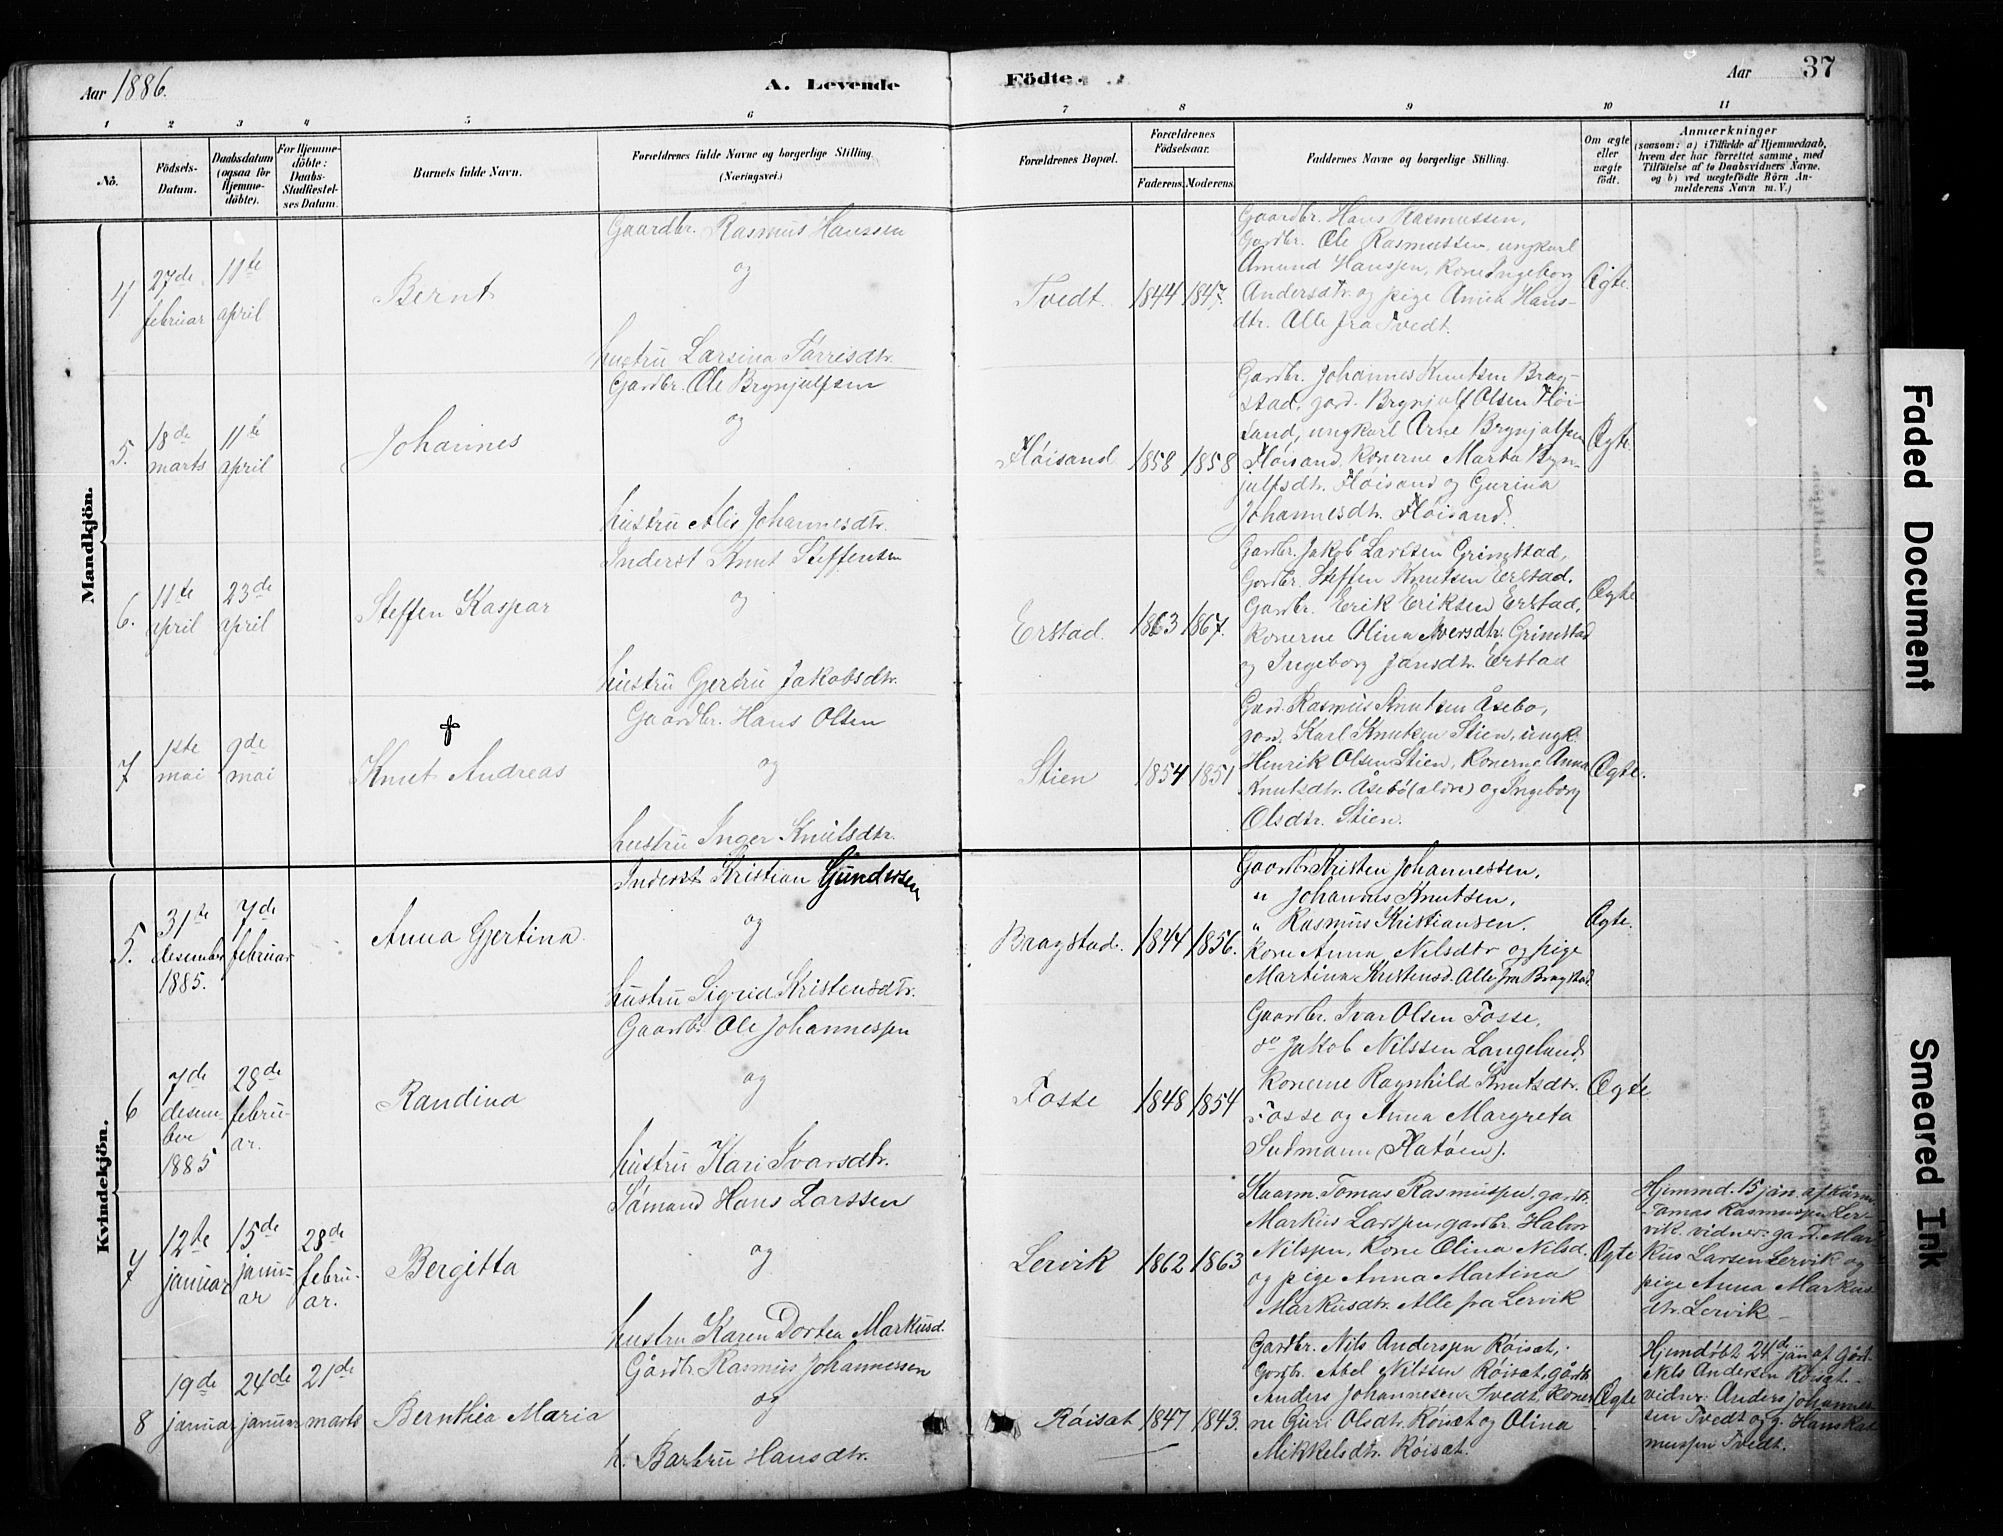 Aar 1886.
A. Levende
Födte.
Aar
37
1
2
3
4
5
6
7
8
9
10
11
No.
Födsels-
Datum.
Daabsdatum
(ogsaa for
Hjemme-
döbte).
For Hjemme-
döbte:
Daabs-
Stadfæstel-
ses Datum.
Barnets fulde Navn.
Forældrenes fulde Navne og borgerlige Stilling.
(Næringsvei.)
Forældrenes Bopæl.
Forældrenes
Födselsaar.
Faderens.
Moderens.
Faddernes Navne og borgerlige Stilling.
Om ægte
eller
uægte
födt.
Anmærkninger
(saasom: a) i Tilfælde af Hjemmedaab,
hvem der har forrettet samme, med
Tilföielse af to Daabsvidners Navne,
og b) ved uægtefödte Börn An-
melderens Navn m. V.)
Mandkjön.
4
27de
februar
11te
april
Bernt
Gaardbr. Rasmus Hanssen
og
hustru Larsina Tørrisdtr.
Tvedt.
1844
1847.
Gaardbr. Hans Rasmussen,
Gardbr. Ole Rasmussen, ungkarl
Amund Hanssen, Kone Ingeborg
Andersdtr. og pige Anna Hans-
dtr. Alle fra Tvedt.
Ægte.
5.
18de
marts
11te
april
Johannes
Gardbr. Ole Brynjulfsen
og
hustru Alis Johannesdtr.
Fløisand
1858
1858
Gardbr. Johannes Knutsen Brag-
stad, gard. Brynjulf Olsen Fløi-
sand, ungkarl Arne Brynjulfsen
Fløisand, Konerne Marta Bryn-
julfsdtr. Fløisand og Gurina
Johannesdtr. Fløisand.
Ægte.
6.
11te
april
23de
april
Steffen Kaspar
Inderst Knut Steffensen
og
hustru Gjertru Jakobsdtr.
Erstad.
1863
1867.
Gardbr. Jakob Larsen Grimstad,
Gardbr. Steffen Knutsen Erstad,
Gardbr. Erik Eriksen Erstad,
Konerne Olina Iversdtr. Grimstad
og Ingeborg Jansdtr. Erstad
Ægte
7
1ste
mai
9de
mai
†
Knut Andreas
Gaardbr. Hans Olsen
og
hustru Inger Knutsdtr.
Stien
1854
1851
Gard. Rasmus Knutsen Åsebø,
gard. Karl Knutsen Stien, ungk.
Henrik Olsen Stien, Konerne Anna
Knutsdtr. Åsebø (aldre) og Ingeborg
Olsdtr. Stien.
Ægte.
Kvindekjön.
5.
31te
desember
1885.
7de
februar
Anna Gjertina
Inderst Kristian Gundersen
og
hustru Sigrid Kristensdtr.
Bragstad.
1844
1856.
Gaardbr. Kristen Johannessen,
" Johannes Knutsen,
" Rasmus Kristiansen.
Kone Anna Nilsdtr og pige
Martina Kristensd. Alle fra Bragstad.
Ægte.
6
7de
desem-
ber
1885
28de
febru-
ar.
Randina
Gaardbr Ole Johannessen
og
hustru Kari Ivarsdtr.
Fosse
1848
1854
Gaardbr. Ivar Olsen Fosse,
do Jakob Nilssen Langeland
Konerne Ragnhild Knutsdtr.
Fosse og Anna Margreta
Sudmann (Flatøen).
Ægte
7
12te
januar
15de
janu-
ar
28de
febru-
ar.
Bergitta
Sømand Hans Larssen
og
hustru Karen Dortea Markusd.
Lervik
1862
1863
Kaarm. Tomas Rasmussen, gardbr.
Markus Larssen, gardbr. Halvor
Nilssen, Kone Olina Nilsd.
og pige Anna Martina
Markusdtr. Alle fra Lervik
Ægte
Hjemmd. 15 jan. af Kårm.
Tomas Rasmussen Ler-
vik. vidner: gard. Mar-
kus Larsen Lervik og
pige Anna Markus-
dtr. Lervik
8
19de
januar
24de
januar
21de
marts
Bernthea Maria
Gårdbr. Rasmus Johannessen
og
h. Barbru Hansdtr.
Røisæt
1847
1843.
Gardbr. Nils Anderssen Røisæt,
Gardbr. Abel Nilssen Røisæt, gårdbr.
Anders Johannesen Tvedt, Koner-
ne Guri Olsdtr. Røisæt og Olina
Mikkelsdtr. Røisæt.
Ægte
Hjemdøbt 24de jan af Gård.
Nils Andersen Røisæt.
vidner: Anders Johannes-
sen Tvedt og g. Hans Ras-
mussen Tvedt.
Faded Document
Smeared Ink